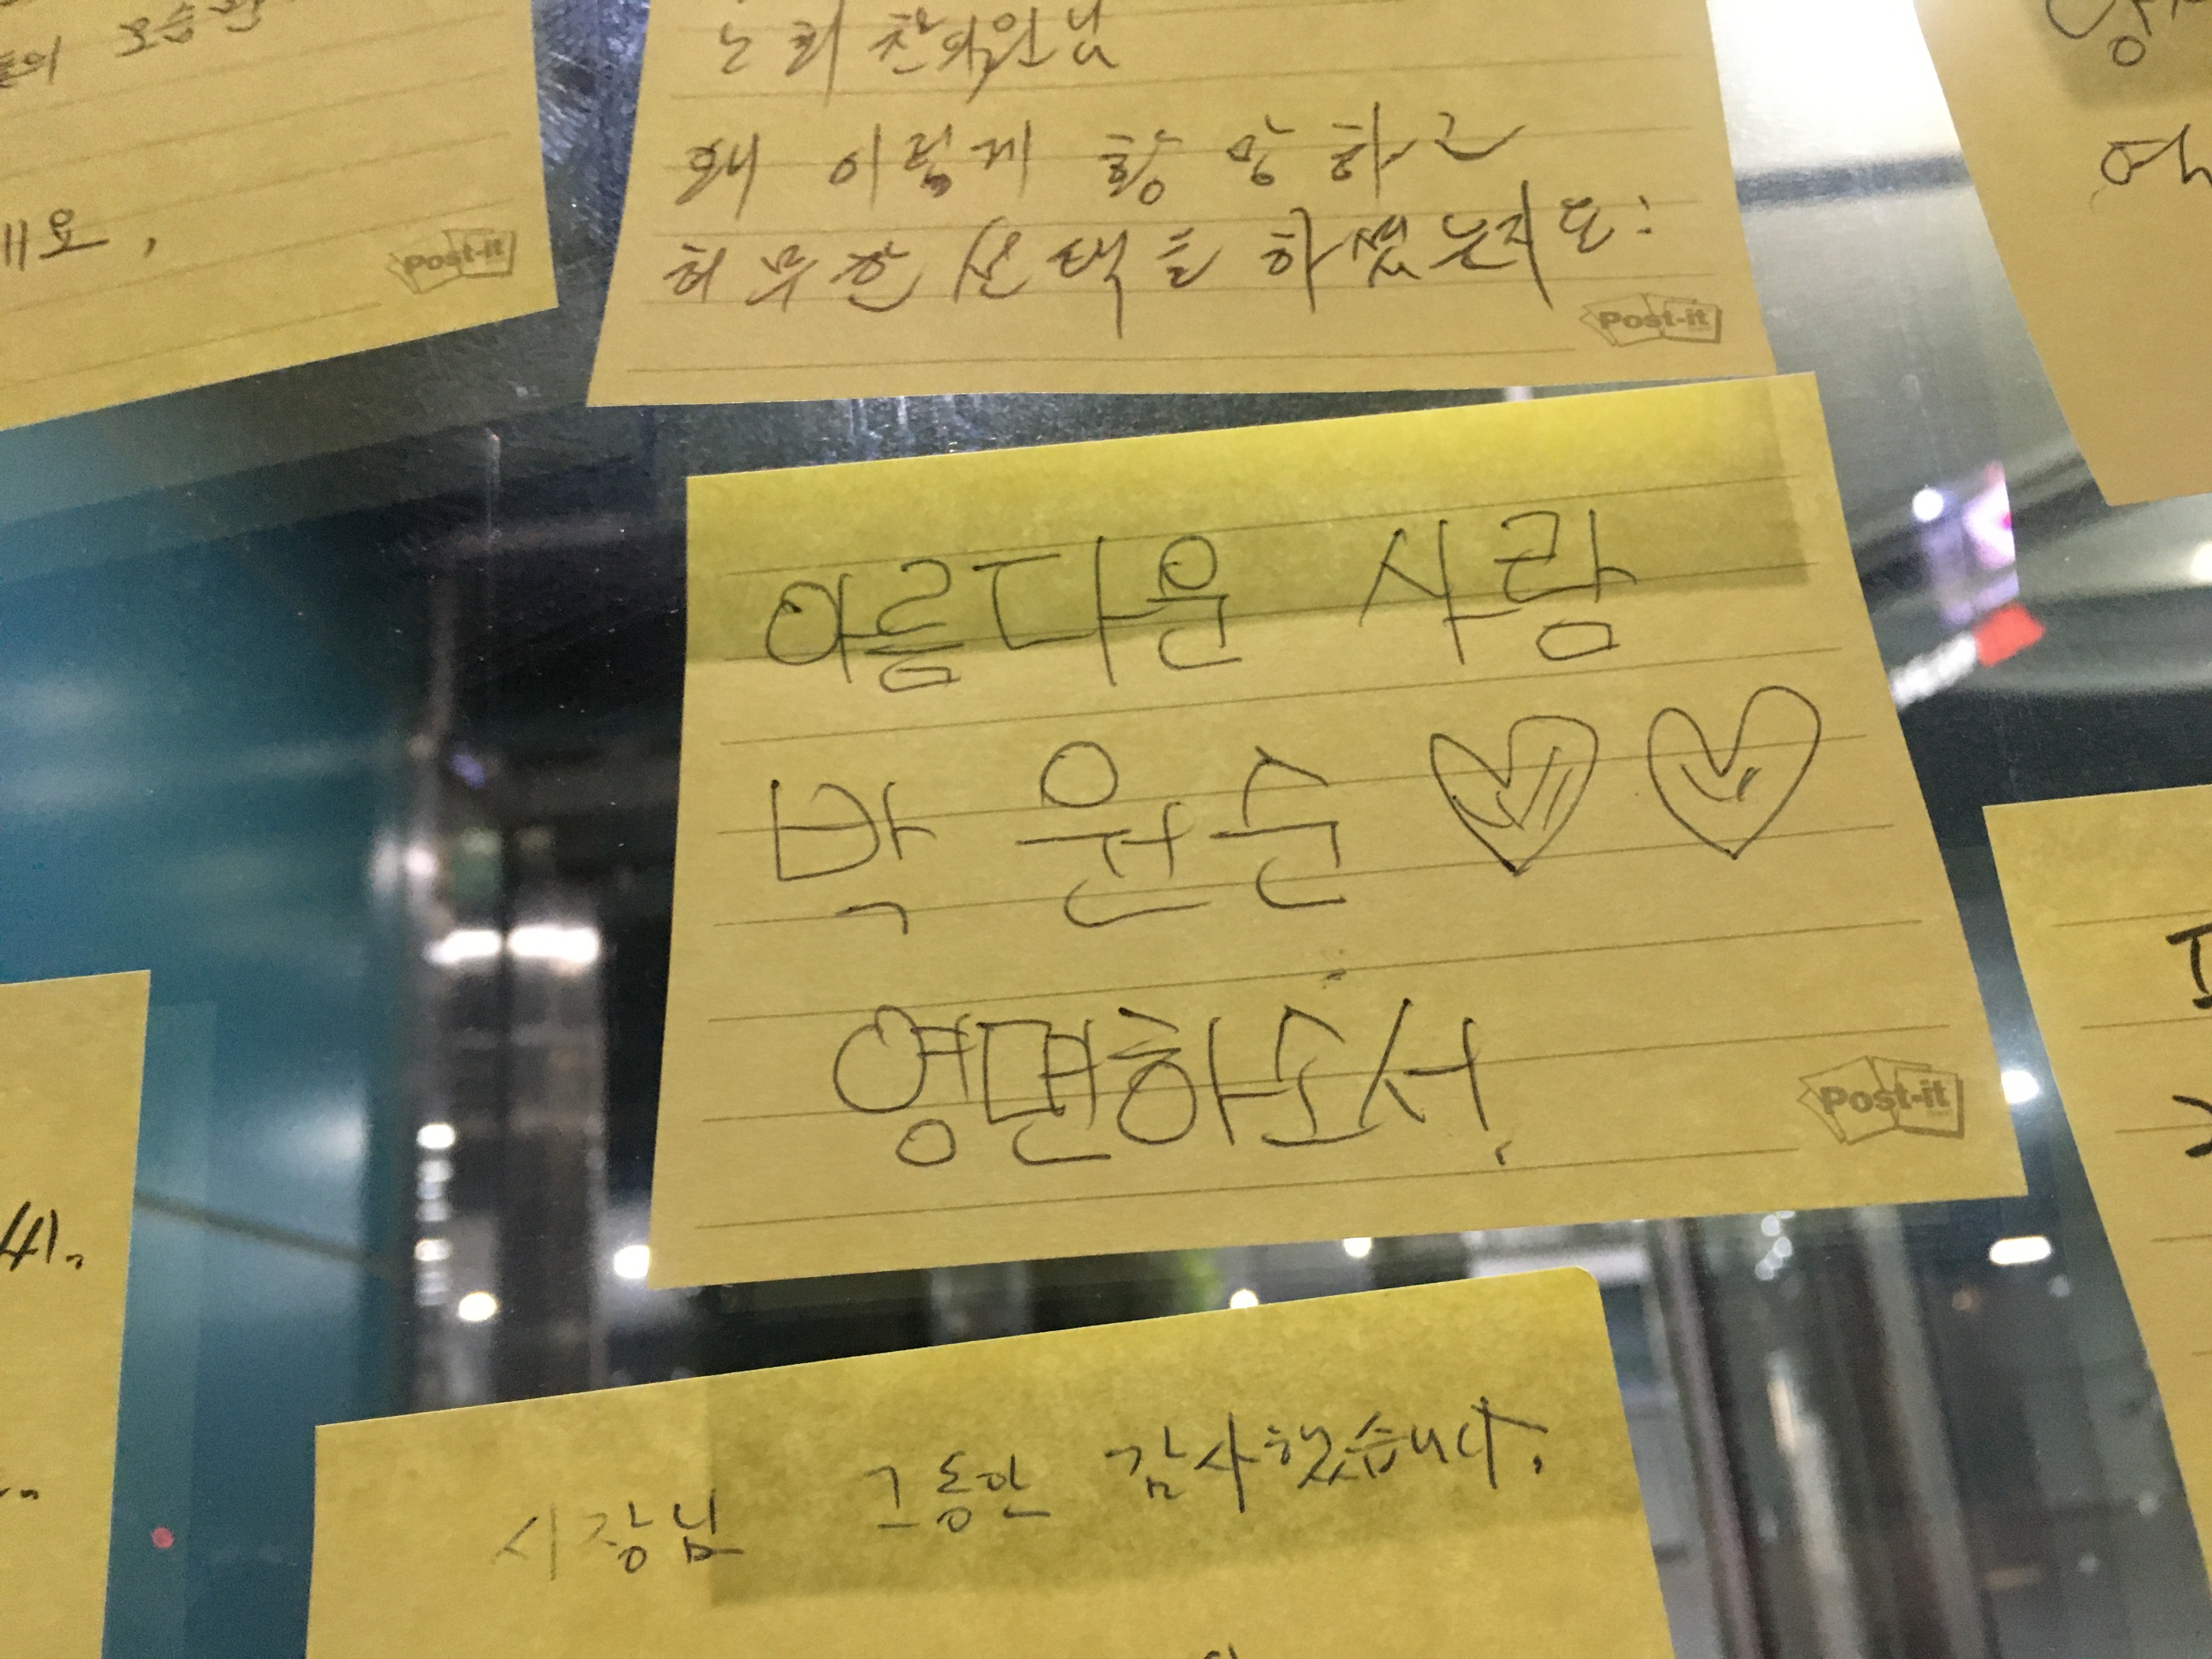 모습만
세요,
노회찬의원님
왜 이렇게 황망하고
허무한 선택을 하셨는지도:
Post-it
Post-it
아름다운 사람
박원순 ♡♡
영면하소서.
Post-it
시장님 그동안 감사했습니다.